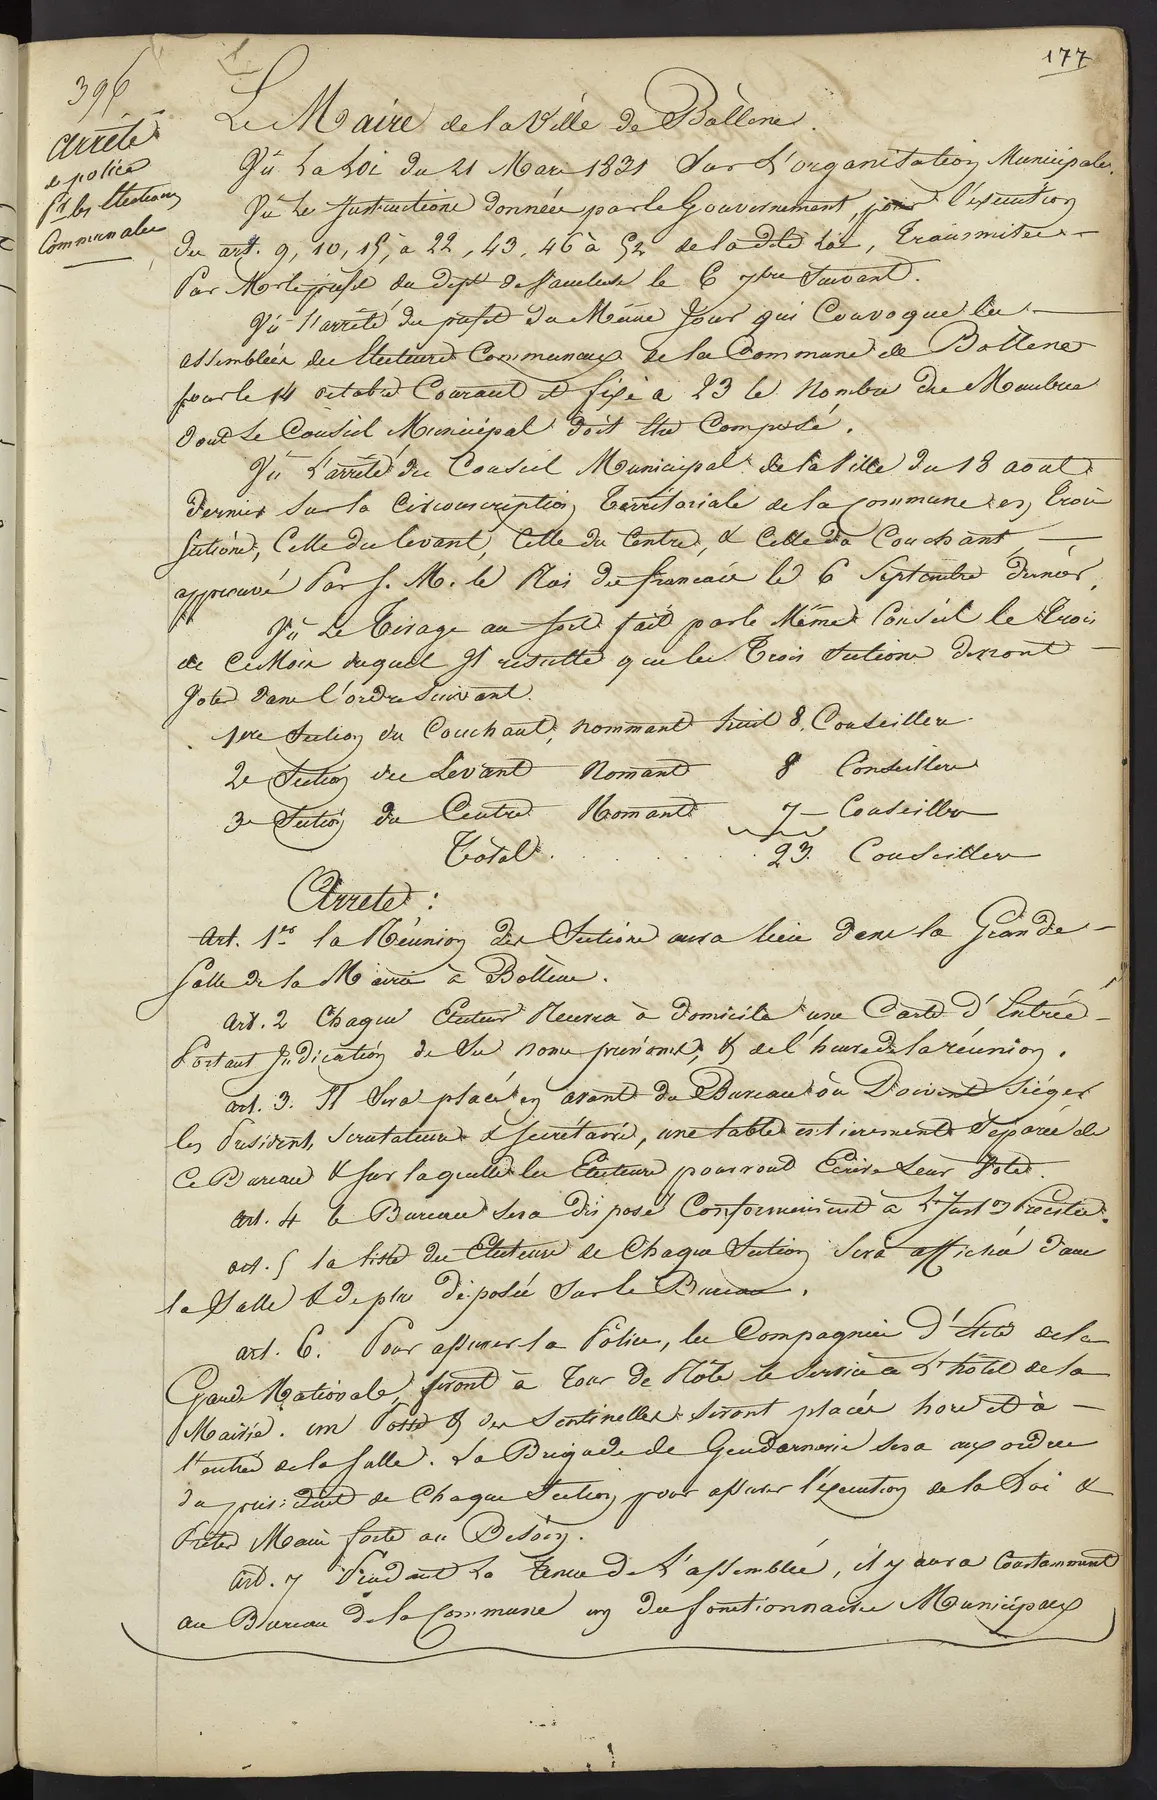 177
396
arrêté
de police
pr les Élections
Communales
Le Maire de la Ville de Bollène.
Vû La Loi du 21 Mars 1831 Sur L'organisation Municipale.
Vu Les Instructions données par le Gouvernement, pour l'exécution
des art. 9, 10, 15, à 22, 43, 46 à 52 de la dite Loi, Transmises
Par Mr le préfet du dépt de Vaucluse le 6 7bre Suivant.
Vû l'arrêté du préfet du Même Jour qui Convoque les
assemblées des Electeurs Communaux de la Commune de Bollene
pour le 14 octobre Courant et fixe à 23 le Nombre des Membres
dont Le Conseil Municipal doit être Composé.
Vû L'arrêté du Conseil Municipal de la Ville du 18 aout
dernier Sur la Circonscription Territoriale de la Commune en trois
sections, Celle du levant, Celle du Centre, & Celle du Couchant,
approuvé Par S. M. le Roi des francais le 6 Septembre dernier.
Vû Le Tirage au sort fait par le Même Conseil le trois
de ce Mois duquel Il resulte que les Trois Sections devront
Voter dans l'ordre Suivant.
1ere Section du Couchant, nommant huit 8. Conseillers.
2e Section du Levant Nomant 8 Conseillers
3e Section du Centre Nomant 7 Conseillers
Total . . . . . . 23. Conseillers
Arrete :
Art. 1er la Réunion des Sections aura lieu dans la Grande
Salle de la Mairie à Bollène.
Art. 2 Chaque Electeur Recevra à domicile une Carte d'Entrée
Portant Indication de Ses noms prénoms, & de l'heure de la réunion.
art. 3. Il Sera placé en avant du Bureau où Doivent Siéger
les Président, Scrutateurs & Secrétaire, une table entierement Séparée de
Ce Bureau & Sur laquelle les Electeurs pourront Ecrire Leur Vote.
Art. 4 le Bureau Sera disposé Conformément à L'Inston Précitée.
art. 5 la liste des Electeurs de Chaque Section Sera affichée dans
la Salle & de plus déposée Sur le Bureau.
art. 6. Pour assurer la Police, les Compagnies d'élite de la
Garde Nationale, feront à Tour de Rôle le service à L'hôtel de la
Mairie. un Poste & des Sentinelles Seront placés hors et à
l'entrée de la Salle. La Brigade de Gendarmerie sera aux ordres
du président de Chaque Section pour assurer l'éxecution de la Loi &
Prêter Main forte au Besoin.
Art. 7 Pendant La Tenue De L'assemblée, il y aura Constamment
au Bureau de la Commune un des fonctionnaires Municipaux